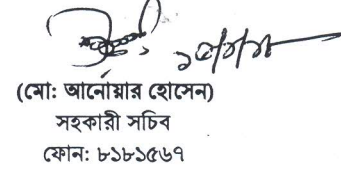 (মো: আনোয়ার হোসেন)
সহকারী সচিব
ফোন: ৮১৮১৫৬৭